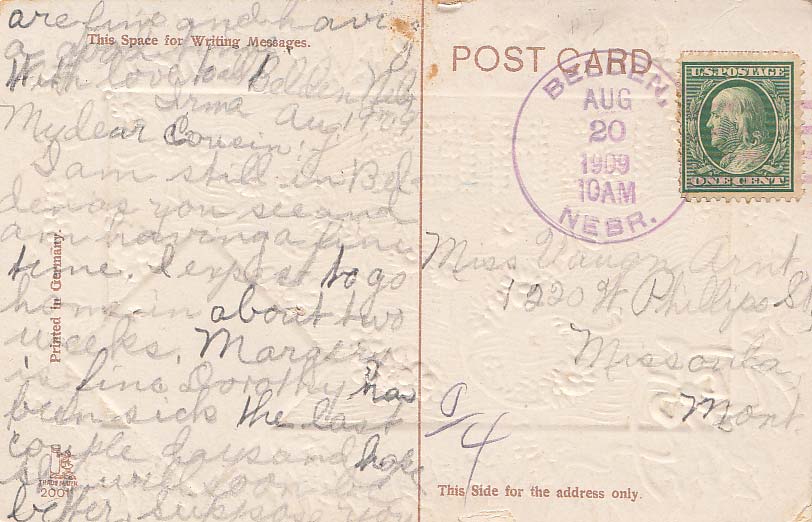 are fine and havi
a good time
With love to all Belden Nebr
Irma Aug 19, 09
My dear Cousin:
I am still in Bel-
den as you see and
am having a fine
time. I expect to go
home in about two
weeks. Margery
is fine. Dorothy has
been sick the last
couple days and hope
she will soon be
better. suppose you
This Space for Writing Messages.
Printed in Germany.
TRADE MARK
200
POST CARD
BELDEN,
AUG
20
1909
10AM
NEBR.
U.S. POSTAGE
ONE CENT
Miss
1220 W. Phillips St
Missoula,
Mont.
9/4
This Side for the address only.